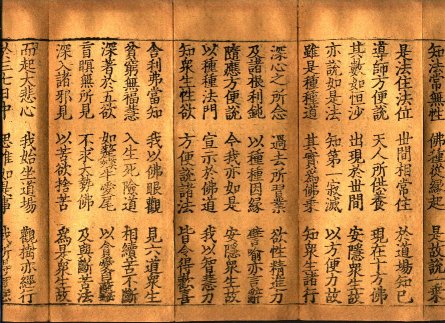 知法常無性 佛種從緣起 是故說一乘
是法住法位 世間相常住 於道場知已
導師方便說 天人所供養 現在十方佛
其數如恒沙 出現於世間 安隱眾生故
亦說如是法 知第一寂滅 以方便力故
雖是種種道 其實為佛乘 知眾生諸行
深心之所念 過去所習業 欲性精進力
及諸根利鈍 以種種因緣 譬喻亦言辭
隨應方便說 今我亦如是 安隱眾生故
以種種法門 宣示於佛道 我以智慧力
知眾生性欲 方便說諸法 皆令得歡喜
舍利弗當知 我以佛眼觀 見六道眾生
貧窮無福慧 入生死險道 相續苦不斷
深著於五欲 如犛牛愛尾 以貪愛自蔽
盲瞑無所見 不求大勢佛 及與斷苦法
深入諸邪見 以苦欲捨苦 為是眾生故
而起大悲心 我始坐道場 觀樹亦經行
於三七日中 思惟如是事